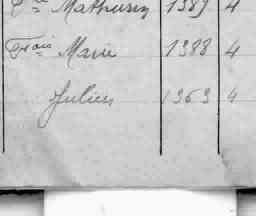 Vve Mathurin 1389 4
Frais Marie 1388 4
Julien 1363 4